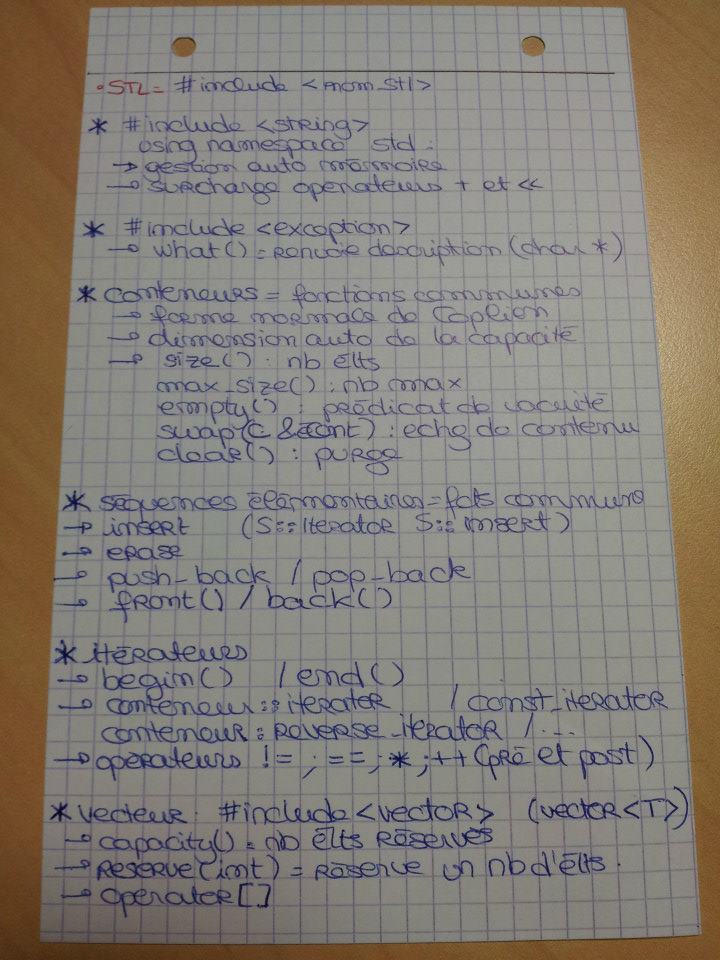 • STL = #include <nom_stl>
* #include <string>
using namespace std :
→ gestion auto mémoire
→ surcharge operateurs + et <<
* #include <exception>
→ what() = renvoie description (char *)
* conteneurs = fonctions communes
→ forme normale de Coplien
→ dimension auto de la capacité
→ size() : nb élts
max_size() : nb max
empty() : prédicat de vacuité
swap(C & cont) : echg de contenu
clear() : purge
* séquences élémentaires = fcts communs
→ insert (S::iterator S::insert)
→ erase
→ push_back / pop_back
→ front() / back()
* itérateurs
→ begin() / end()
→ conteneur::iterator / const_iterator
conteneur:reverse_iterator / ...
→ opérateurs != ; == ; * ; ++ (pré et post)
* vecteur : #include <vector> (vector<T>)
→ capacity() = nb élts réservés
→ reserve(int) = réserve un nb d'élts.
→ operator []